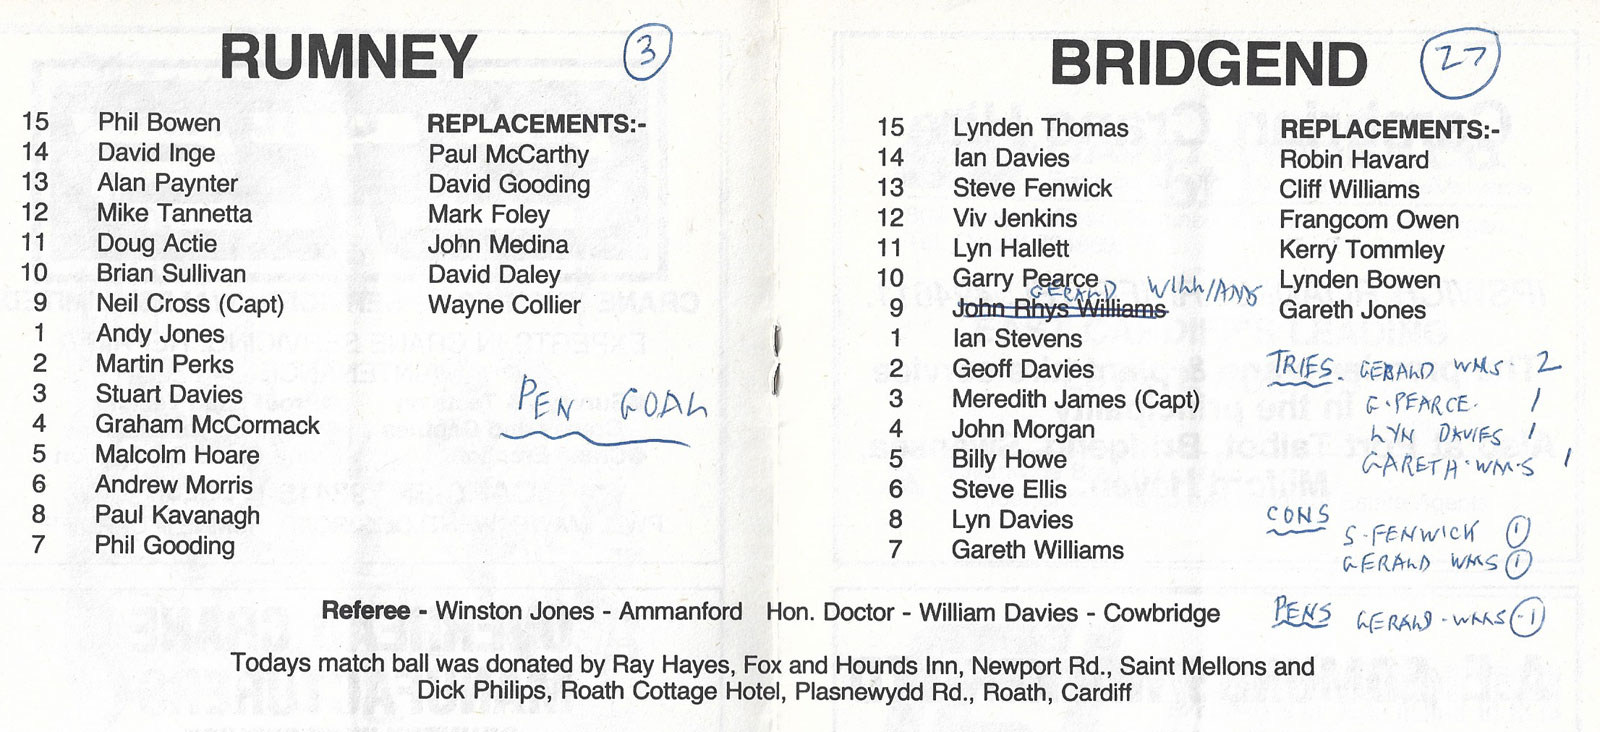 RUMNEY 3
15 Phil Bowen REPLACEMENTS:-
14 David Inge Paul McCarthy
13 Alan Paynter David Gooding
12 Mike Tannetta Mark Foley
11 Doug Actie John Medina
10 Brian Sullivan David Daley
9 Neil Cross (Capt) Wayne Collier
1 Andy Jones
2 Martin Perks
3 Stuart Davies
4 Graham McCormack
5 Malcolm Hoare
6 Andrew Morris
8 Paul Kavanagh
7 Phil Gooding
PEN GOAL
BRIDGEND 27
15 Lynden Thomas REPLACEMENTS:-
14 Ian Davies Robin Havard
13 Steve Fenwick Cliff Williams
12 Viv Jenkins Frangcom Owen
11 Lyn Hallett Kerry Tommley
10 Garry Pearce Lynden Bowen
GERALD WILLIAMS
9 John Rhys Williams Gareth Jones
1 Ian Stevens
2 Geoff Davies
3 Meredith James (Capt)
4 John Morgan
5 Billy Howe
6 Steve Ellis
8 Lyn Davies
7 Gareth Williams
TRIES. GERALD WMS. 2
G. PEARCE. 1
LYN DAVIES 1
GARETH. WMS 1
CONS
S. FENWICK 1
GERALD WMS 1
PENS GERALD. WMS - 1
Referee - Winston Jones - Ammanford Hon. Doctor - William Davies - Cowbridge
Todays match ball was donated by Ray Hayes, Fox and Hounds Inn, Newport Rd., Saint Mellons and
Dick Philips, Roath Cottage Hotel, Plasnewydd Rd., Roath, Cardiff